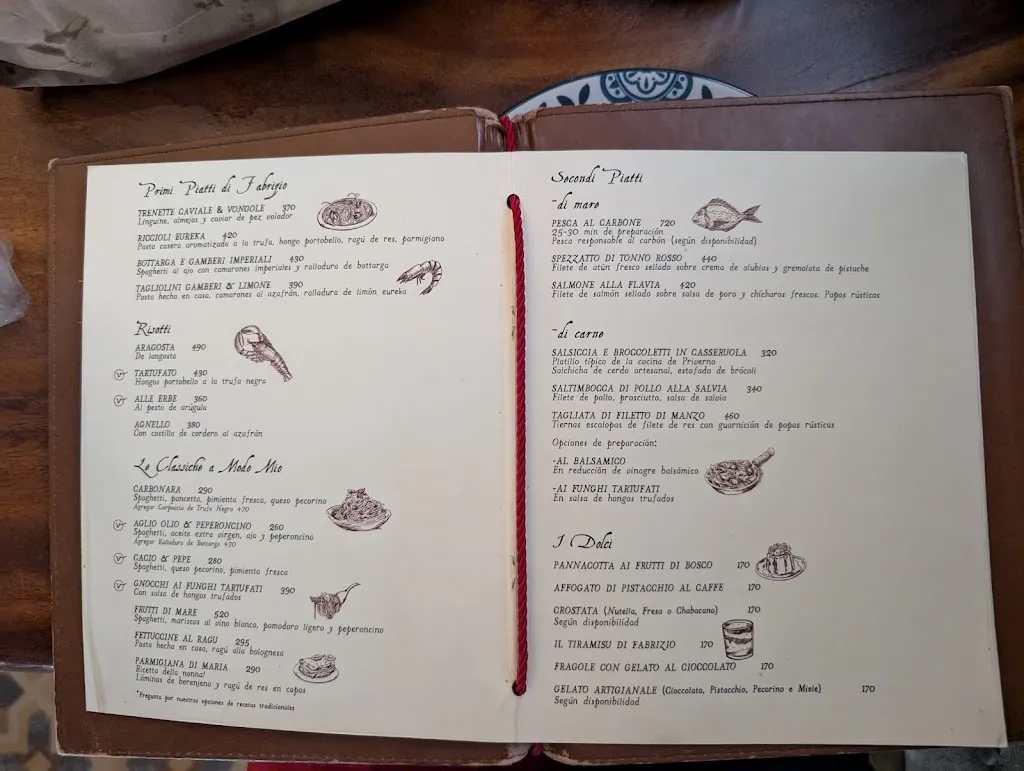 Primi Piatti di Fabrizio
TRENETTE CAVIALE & VONGOLE 370
Linguine, almejas y caviar de pez volador
RICCIOLI EUREKA 420
Pasta casera aromatizada a la trufa, hongo portobello, ragú de res, parmigiano
BOTTARGA E GAMBERI IMPERIALI 430
Spaghetti al ajo con camarones imperiales y ralladura de bottarga
TAGLIOLINI GAMBERI & LIMONE 390
Pasta hecha en casa, camarones al azafrán, ralladura de limón eureka
Risotti
ARAGOSTA 490
De langosta
V TARTUFATO 430
Hongos portobello a la trufa negra
V ALLE ERBE 360
Al pesto de arúgula
AGNELLO 380
Con costilla de cordero al azafrán
Le Classiche a Modo Mio
CARBONARA 290
Spaghetti, pancetta, pimienta fresca, queso pecorino
Agregar Carpaccio de Trufa Negra +70
V AGLIO OLIO & PEPERONCINO 260
Spaghetti, aceite extra virgen, ajo y peperoncino
Agregar Ralladura de Bottarga +70
V CACIO & PEPE 280
Spaghetti, queso pecorino, pimienta fresca
V GNOCCHI AI FUNGHI TARTUFATI 390
Con salsa de hongos trufados
FRUTTI DI MARE 520
Spaghetti, mariscos al vino blanco, pomodoro ligero y peperoncino
FETTUCCINE AL RAGU 295
Pasta hecha en casa, ragú alla bolognesa
PARMIGIANA DI MARIA 290
Ricetta della nonna!
Láminas de berenjena y ragú de res en capas
*Pregunta por nuestras opciones de recetas tradicionales
Secondi Piatti
-di mare
PESCA AL CARBONE 720
25-30 min de preparación
Pesca responsable al carbón (según disponibilidad)
SPEZZATTO DI TONNO ROSSO 440
Filete de atún fresco sellado sobre crema de alubias y gremolata de pistache
SALMONE ALLA FLAVIA 420
Filete de salmón sellado sobre salsa de poro y chícharos frescos. Papas rústicas
-di carne
SALSICCIA E BROCCOLETTI IN CASSERUOLA 320
Platillo típico de la cocina de Priverno
Salchicha de cerdo artesanal, estofado de brócoli
SALTIMBOCCA DI POLLO ALLA SALVIA 340
Filete de pollo, prosciutto, salsa de salvia
TAGLIATA DI FILETTO DI MANZO 460
Tiernas escalopas de filete de res con guarnición de papas rústicas
Opciones de preparación:
-AL BALSAMICO
En reducción de vinagre balsámico
-AI FUNGHI TARTUFATI
En salsa de hongos trufados
I Dolci
PANNACOTTA AI FRUTTI DI BOSCO 170
AFFOGATO DI PISTACCHIO AL CAFFE 170
CROSTATA (Nutella, Fresa o Chabacano) 170
Según disponibilidad
IL TIRAMISU DI FABRIZIO 170
FRAGOLE CON GELATO AL CIOCCOLATO 170
GELATO ARTIGIANALE (Cioccolato, Pistacchio, Pecorino e Miele) 170
Según disponibilidad